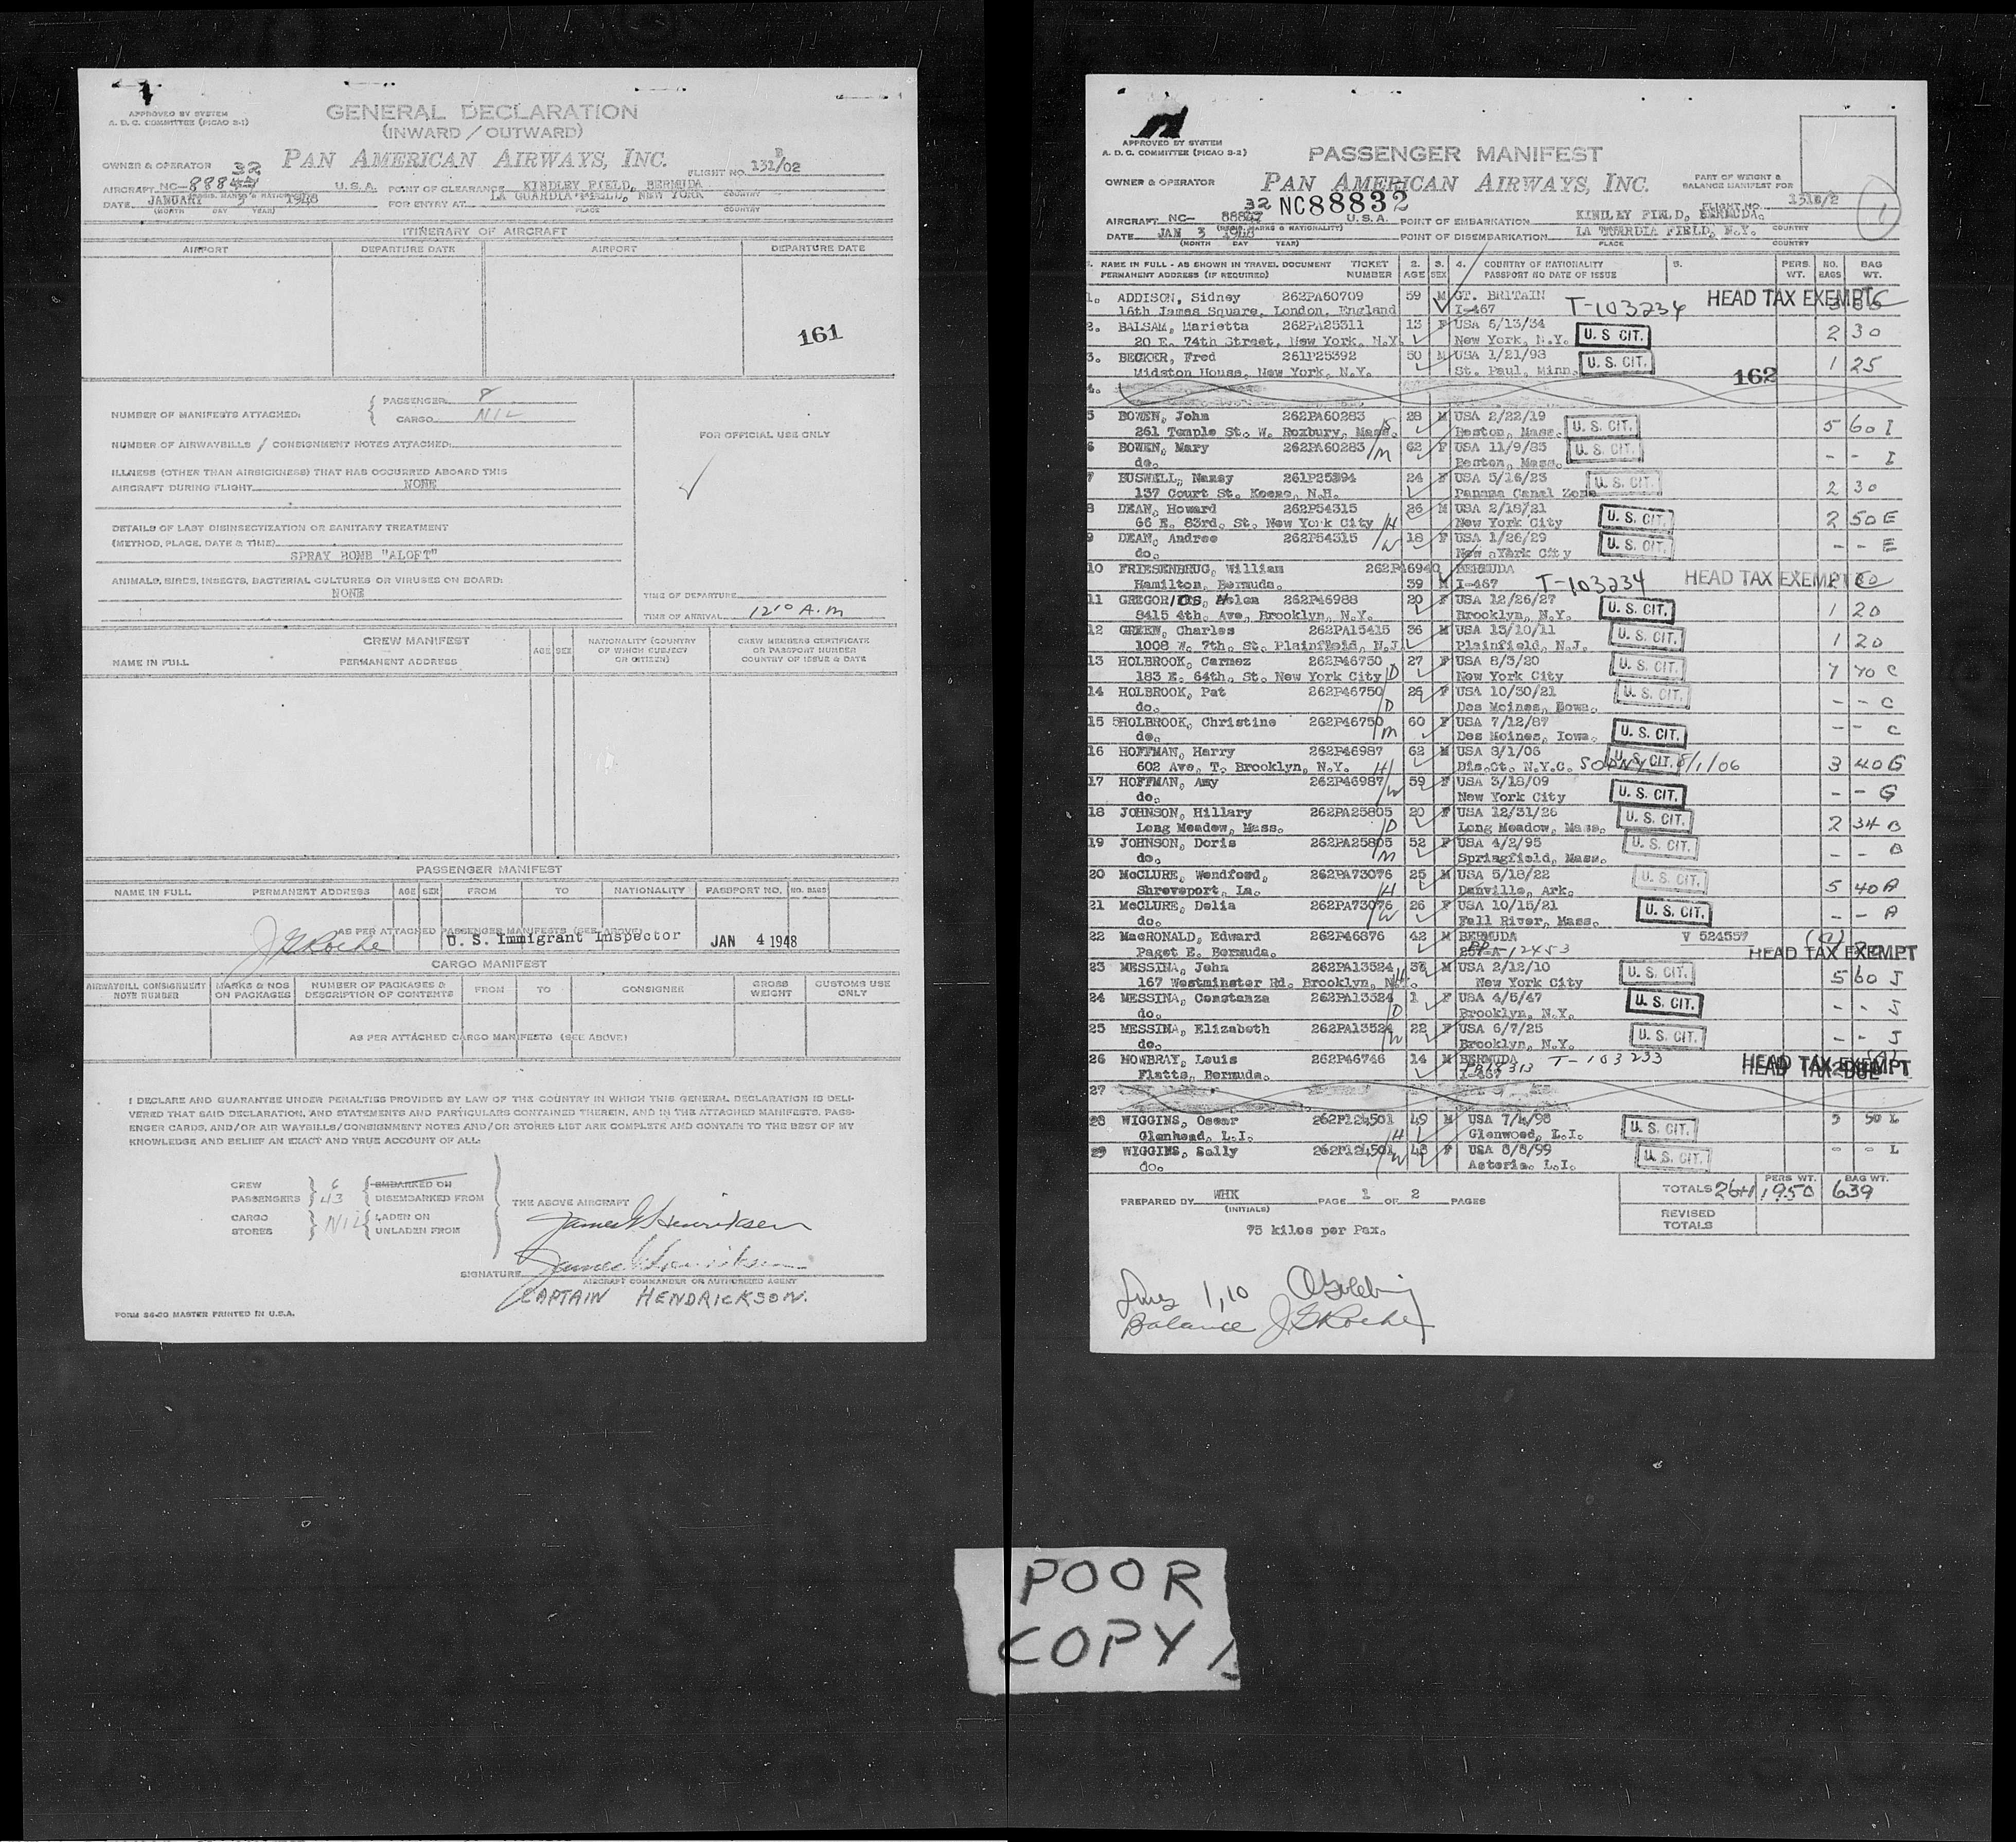 APPROVED BY SYSTEM
A. D. C. COMMITTEE (PICAO S-1)
GENERAL DECLARATION
(INWARD / OUTWARD)
OWNER & OPERATOR
PAN AMERICAN AIRWAYS, INC.
FLIGHT NO. 131/02
B
32
AIRCRAFT NC-888
U.S.A.
POINT OF CLEARANCE KINDLEY FIELD, BERMUDA
DATE JANUARY 3 1948
FOR ENTRY AT LA GUARDIA FIELD, NEW YORK
(MONTH DAY YEAR)
PLACE COUNTRY
ITINERARY OF AIRCRAFT
AIRPORT DEPARTURE DATE AIRPORT DEPARTURE DATE
161
NUMBER OF MANIFESTS ATTACHED:
PASSENGER 8
CARGO NIL
NUMBER OF AIRWAYBILLS / CONSIGNMENT NOTES ATTACHED:
FOR OFFICIAL USE ONLY
ILLNESS (OTHER THAN AIRSICKNESS) THAT HAS OCCURRED ABOARD THIS
AIRCRAFT DURING FLIGHT NONE
DETAILS OF LAST DISINSECTIZATION OR SANITARY TREATMENT
(METHOD, PLACE, DATE & TIME)
SPRAY BOMB "ALOFT"
ANIMALS, BIRDS, INSECTS, BACTERIAL CULTURES OR VIRUSES ON BOARD:
NONE
TIME OF DEPARTURE
TIME OF ARRIVAL 1210 A.M
CREW MANIFEST
NAME IN FULL PERMANENT ADDRESS AGE SEX
NATIONALITY (COUNTRY OF WHICH SUBJECT OR CITIZEN)
CREW MEMBERS CERTIFICATE OR PASSPORT NUMBER COUNTRY OF ISSUE & DATE
PASSENGER MANIFEST
NAME IN FULL PERMANENT ADDRESS AGE SEX FROM TO NATIONALITY PASSPORT NO. NO. BAGS
AS PER ATTACHED PASSENGER MANIFESTS (SEE ABOVE)
J G Roche U. S. Immigrant Inspector JAN 4 1948
CARGO MANIFEST
AIRWAYBILL CONSIGNMENT NOTE NUMBER
MARKS & NOS ON PACKAGES
NUMBER OF PACKAGES & DESCRIPTION OF CONTENTS
FROM TO CONSIGNEE
GROSS WEIGHT
CUSTOMS USE ONLY
AS PER ATTACHED CARGO MANIFESTS (SEE ABOVE)
I DECLARE AND GUARANTEE UNDER PENALTIES PROVIDED BY LAW OF THE COUNTRY IN WHICH THIS GENERAL DECLARATION IS DELI-
VERED THAT SAID DECLARATION, AND STATEMENTS AND PARTICULARS CONTAINED THEREIN, AND IN THE ATTACHED MANIFESTS, PASS-
ENGER CARDS, AND/OR AIR WAYBILLS/CONSIGNMENT NOTES AND/OR STORES LIST ARE COMPLETE AND CONTAIN TO THE BEST OF MY
KNOWLEDGE AND BELIEF AN EXACT AND TRUE ACCOUNT OF ALL:
CREW 6 EMBARKED ON
PASSENGERS 43 DISEMBARKED FROM
CARGO NIL LADEN ON
STORES UNLADEN FROM
THE ABOVE AIRCRAFT
SIGNATURE
AIRCRAFT COMMANDER OR AUTHORIZED AGENT
CAPTAIN HENDRICKSON.
FORM 24-20 MASTER PRINTED IN U.S.A.
APPROVED BY SYSTEM
A. D. C. COMMITTEE (PICAO S-2)
PASSENGER MANIFEST
OWNER & OPERATOR
PAN AMERICAN AIRWAYS, INC.
PART OF WEIGHT & BALANCE MANIFEST FOR
FLIGHT NO. 131B/2
1
32 NC88832
AIRCRAFT NC-
U.S.A.
POINT OF EMBARKATION KINDLEY FIELD, BERMUDA.
DATE JAN 3 1948
POINT OF DISEMBARKATION LA GUARDIA FIELD, N.Y.
(MONTH DAY YEAR)
PLACE COUNTRY
1. NAME IN FULL - AS SHOWN IN TRAVEL DOCUMENT TICKET 2. 3. 4. COUNTRY OF NATIONALITY 5. PERS. NO. BAG
PERMANENT ADDRESS (IF REQUIRED) NUMBER AGE SEX PASSPORT NO DATE OF ISSUE WT. BAGS WT.
1. ADDISON, Sidney 262PA60709 59 M GT. BRITAIN HEAD TAX EXEMPT
16th James Square, London, England I-467 T-103234
2. BALSAM, Marietta 262PA25311 13 F USA 6/13/34 2 30
20 E. 74th Street, New York, N.Y. New York, N.Y. U. S CIT.
3. BECKER, Fred 261P25392 50 M USA 1/21/98 1 25
Midston House, New York, N.Y. St. Paul, Minn. U. S. CIT.
162
4.
5 BOWEN, John 262PA60283 28 M USA 2/22/19 U. S. CIT. 5 60 I
261 Temple St. W. Roxbury, Mass. S Boston, Mass.
6 BOWEN, Mary 262PA60283 M 62 F USA 11/9/85 U. S. CIT. - - I
do. Boston, Mass.
7 BUSWELL, Nancy 261P25394 24 F USA 5/16/23 U. S. CIT. 2 30
137 Court St. Keene, N.H. Panama Canal Zone
8 DEAN, Howard 262P54315 26 M USA 2/18/21 U. S. CIT. 2 50 E
66 E. 83rd. St. New York City H New York City
9 DEAN, Andree 262P54315 W 18 F USA 1/26/29 U. S. CIT. - - E
do. New York City
10 FRIESENBRUG, William 262P46940 BERMUDA HEAD TAX EXEMPT
Hamilton, Bermuda. 39 M I-467 T-103234
11 GREGORIOS, Helen 262P46988 20 F USA 12/26/27 U. S. CIT. 1 20
8415 4th. Ave, Brooklyn, N.Y. Brooklyn, N.Y.
12 GREEN, Charles 262PA15415 36 M USA 13/10/11 U. S. CIT. 1 20
1008 W. 7th. St. Plainfield, N.J. Plainfield, N.J.
13 HOLBROOK, Carmez 262P46750 27 F USA 8/3/20 U. S. CIT. 7 70 C
183 E. 64th. St. New York City D New York City
14 HOLBROOK, Pat 262P46750 26 F USA 10/30/21 U. S. CIT. - - C
do. D Des Moines, Iowa.
15 HOLBROOK, Christine 262P46750 60 F USA 7/12/87 U. S. CIT. - - C
do. M Des Moines, Iowa.
16 HOFFMAN, Harry 262P46987 62 M USA 8/1/06 U. S. CIT. 3 40 G
602 Ave, T. Brooklyn, N.Y. H Dis.Ct. N.Y.C. SODNY 8/1/06
17 HOFFMAN, Amy 262P46987 W 59 F USA 3/18/09 U. S. CIT. - - G
do. New York City
18 JOHNSON, Hillary 262PA25805 20 F USA 12/31/26 U. S. CIT. 2 34 B
Long Meadow, Mass. D Long Meadow, Mass.
19 JOHNSON, Doris 262PA25805 52 F USA 4/2/95 U. S. CIT. - - B
do. M Springfield, Mass.
20 McCLURE, Wendford, 262PA73076 25 M USA 5/18/22 U. S. CIT. 5 40 A
Shreveport, La. H Danville, Ark.
21 McCLURE, Delia 262PA73076 26 F USA 10/15/21 U. S. CIT. - - A
do. W Fall River, Mass.
22 MacRONALD, Edward 262P46876 42 M BERMUDA V 524557
Paget E. Bermuda. 12453 HEAD TAX EXEMPT
23 MESSINA, John 262PA13524 M USA 2/12/10 U. S. CIT. 5 60 J
167 Westminster Rd. Brooklyn, N.Y. H New York City
24 MESSINA, Constanza 262PA13524 1 F USA 4/5/47 U. S. CIT. - - J
do. D Brooklyn, N.Y.
25 MESSINA, Elizabeth 262PA13524 22 F USA 6/7/25 U. S. CIT. - - J
do. W Brooklyn, N.Y.
26 MOWBRAY, Louis 262P46746 14 M BERMUDA T-103233 HEAD TAX EXEMPT
Flatts, Bermuda. I-467 HEAD TAX DUE
27
28 WIGGINS, Oscar 262P124501 49 M USA 7/4/98 U. S. CIT. 3 50 L
Glenhead, L.I. H Glenwood, L.I.
29 WIGGINS, Sally 262P124501 48 F USA 8/8/99 U. S. CIT. - - L
do. W Astoria. L.I.
PREPARED BY WHK PAGE 1 OF 2 PAGES
(INITIALS)
PERS WT. BAG WT.
TOTALS 26+1 1950 639
REVISED TOTALS
75 kilos per Pax.
Lines 1,10
Balance J G Roche
POOR
COPY